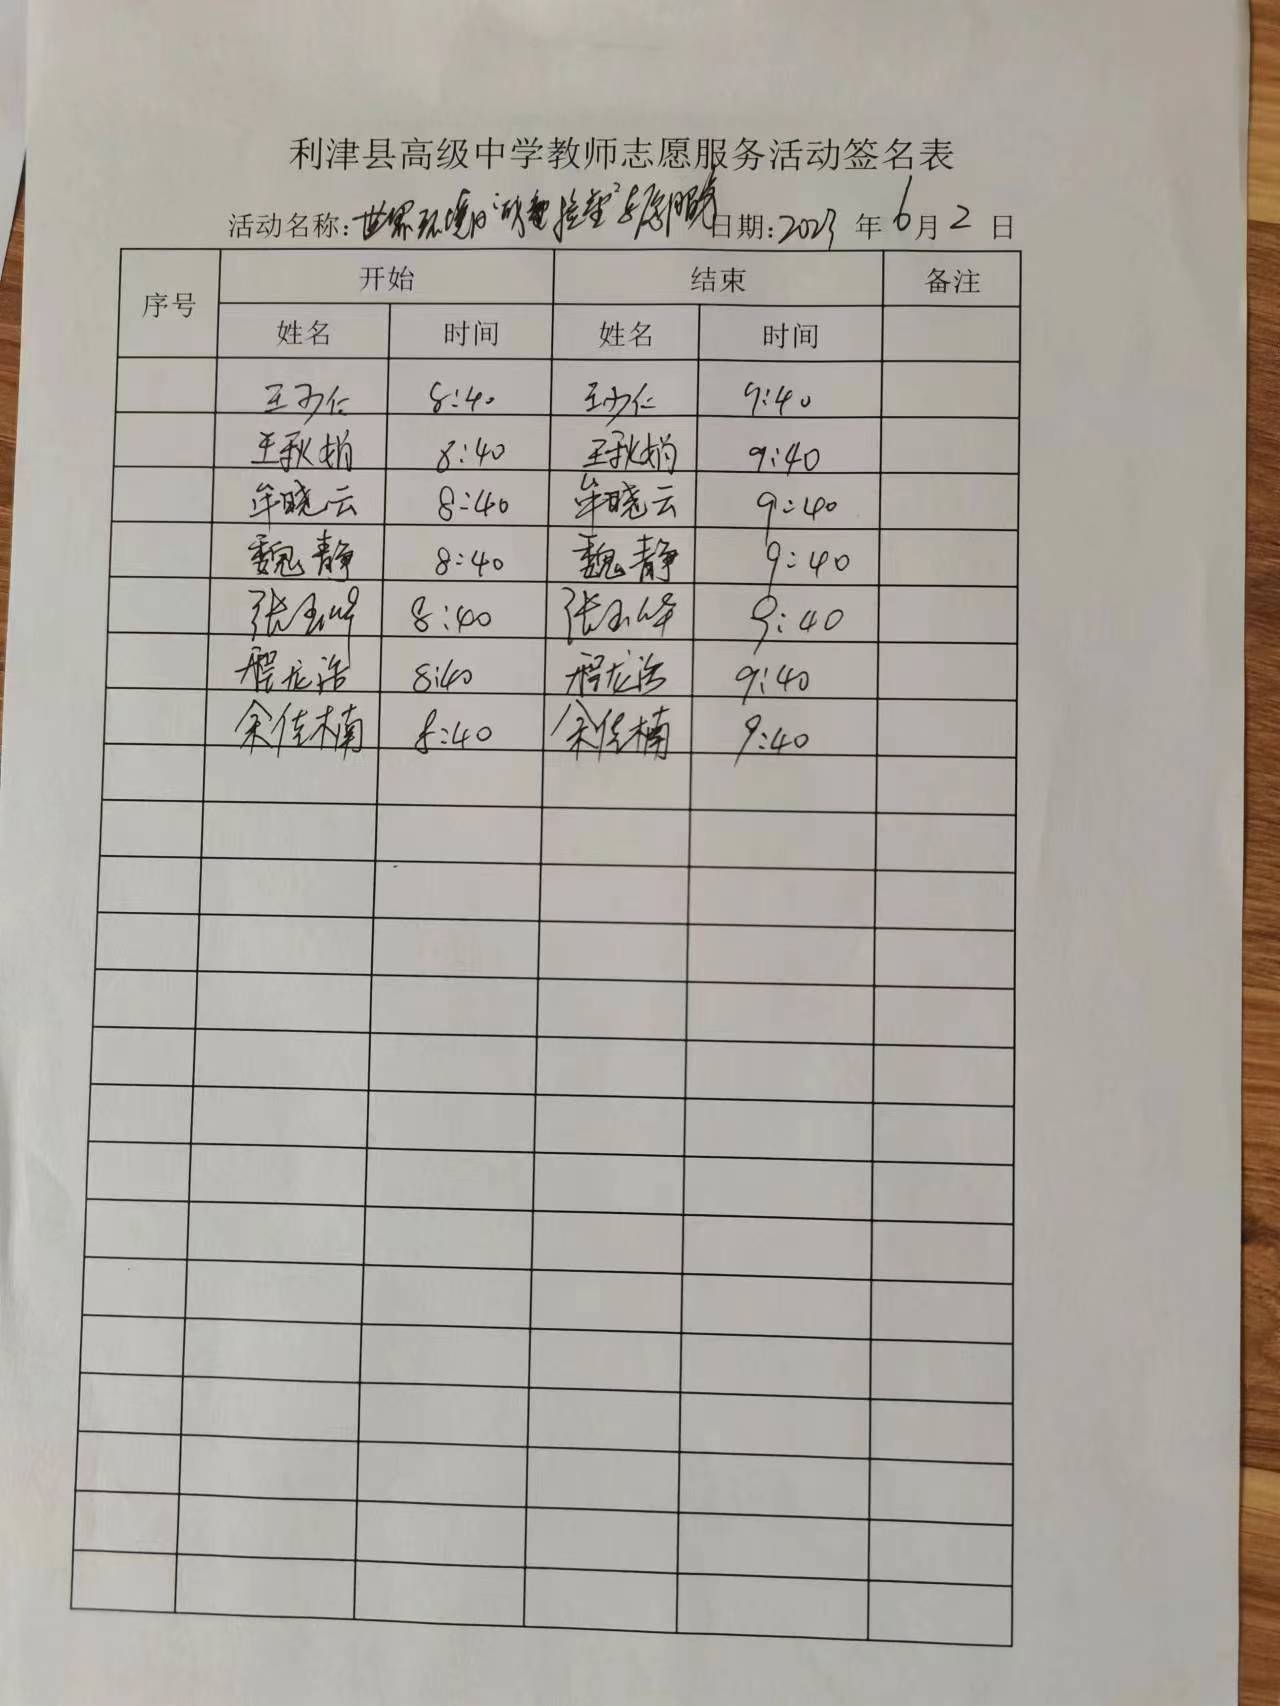 利津县高级中学教师志愿服务活动签名表
活动名称:世界环境日 志愿服务 日期:2023年6月2日
序号 开始 结束 备注
姓名 时间 姓名 时间
王少仁 8:40 王少仁 9:40
王秋娟 8:40 王秋娟 9:40
牟晓云 8:40 牟晓云 9:40
魏静 8:40 魏静 9:40
张玉峰 8:40 张玉峰 9:40
程龙浩 8:40 程龙浩 9:40
余佳楠 8:40 余佳楠 9:40